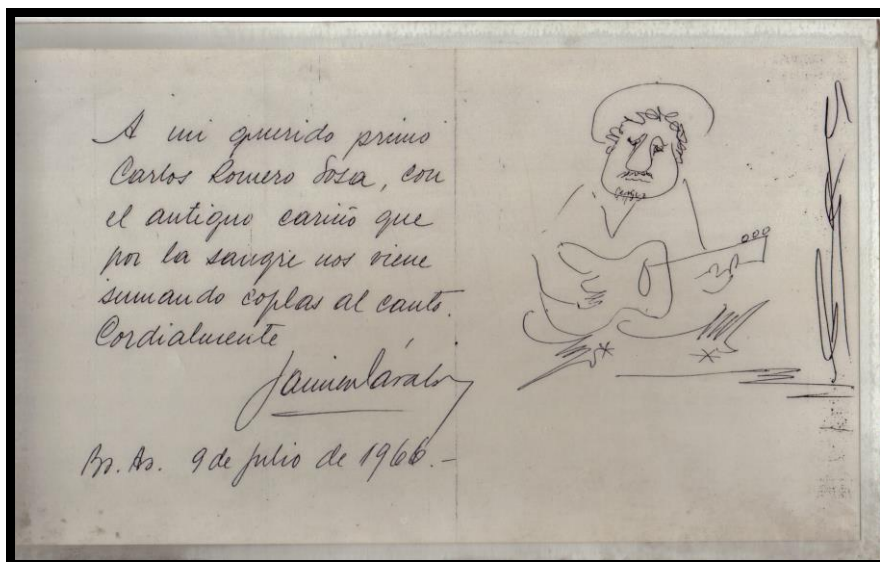 A mi querido primo
Carlos Romero Sosa, con
el antiguo cariño que
por la sangre nos viene
sumando coplas al canto.
Cordialmente
Jaime Dávalos
Bs. As. 9 de julio de 1966.-